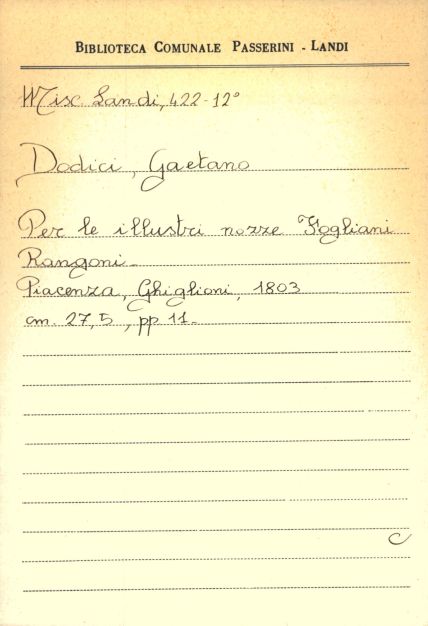 BIBLIOTECA COMUNALE PASSERINI - LANDI
Misc. Landi, 422-12°
Dodici, Gaetano
Per le illustri nozze Fogliani
Rangoni.
Piacenza, Ghiglioni, 1803
cm. 27,5, pp 11.
C